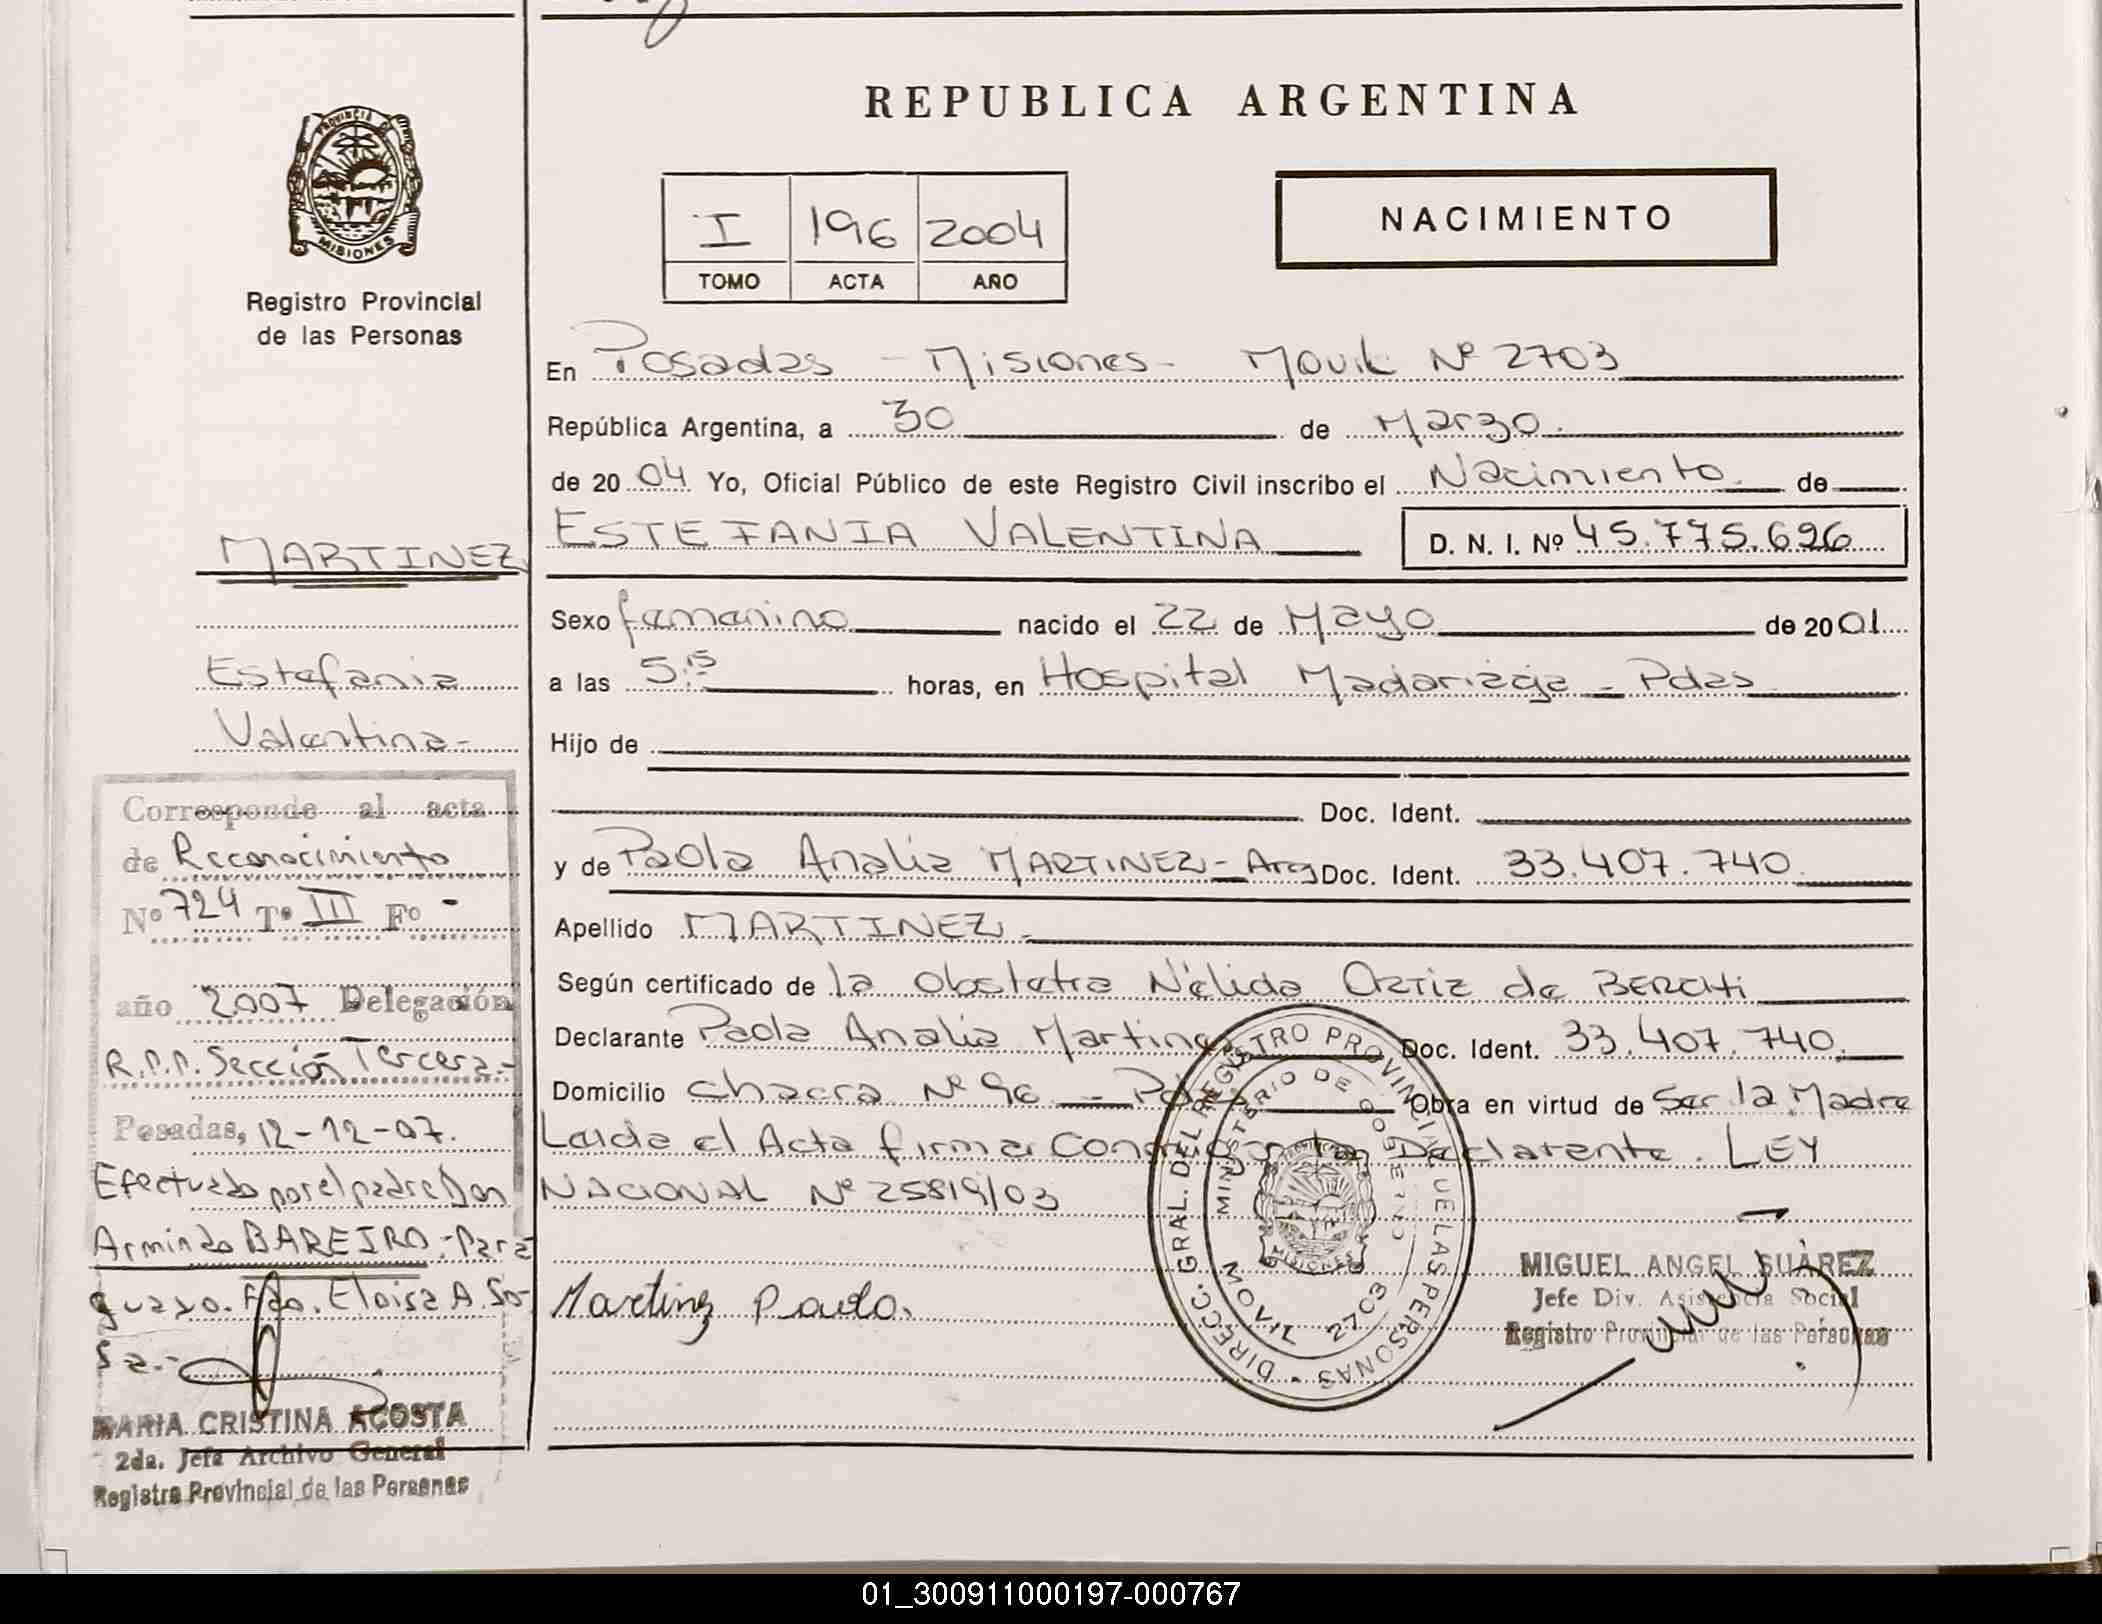 REPUBLICA ARGENTINA
PROVINCIA DE
MISIONES
Registro Provincial
de las Personas
I 196 2004
TOMO ACTA AÑO
NACIMIENTO
En Posadas - Misiones - Movil Nº 2703
República Argentina, a 30 de Marzo.
de 2004 Yo, Oficial Público de este Registro Civil inscribo el Nacimiento de
ESTEFANIA VALENTINA D. N. I. Nº 45.775.696
Sexo femenino nacido el 22 de Mayo de 2001
a las 5.15 horas, en Hospital Madariaga - Pdas
Hijo de
Doc. Ident.
y de Paola Analia MARTINEZ - Arg Doc. Ident. 33.407.740.
Apellido MARTINEZ.
Según certificado de la obstetra Nélida Ortiz de
Declarante Paola Analia Martinez Doc. Ident. 33.407.740.
Domicilio Chacra Nº 96 - Pdas Obra en virtud de Ser la Madre
Leida el Acta firma conmigo la Declarante. LEY
NACIONAL Nº 25819/03
Martinez Paola.
DIRECC. GRAL. DEL REGISTRO PROVINCIAL DE LAS PERSONAS
MINISTERIO DE GOBIERNO
MISIONES
MOVIL 2703
MIGUEL ANGEL SUÁREZ
Jefe Div. Asistencia Social
Registro Provincial de las Personas
MARTINEZ
Estefania
Valentina-
Corresponde al acta
de Reconocimiento
Nº 724 Tº III Fº -
año 2007 Delegación
R.P.P. Sección Tercera.-
Posadas, 12-12-07.
Efectuado por el padre Don
Armindo BAREIRO.-Para
guayo. Fdo. Eloisa A. So-
sa.-
MARIA CRISTINA ACOSTA
2da. Jefa Archivo General
Registro Provincial de las Personas
01_300911000197-000767